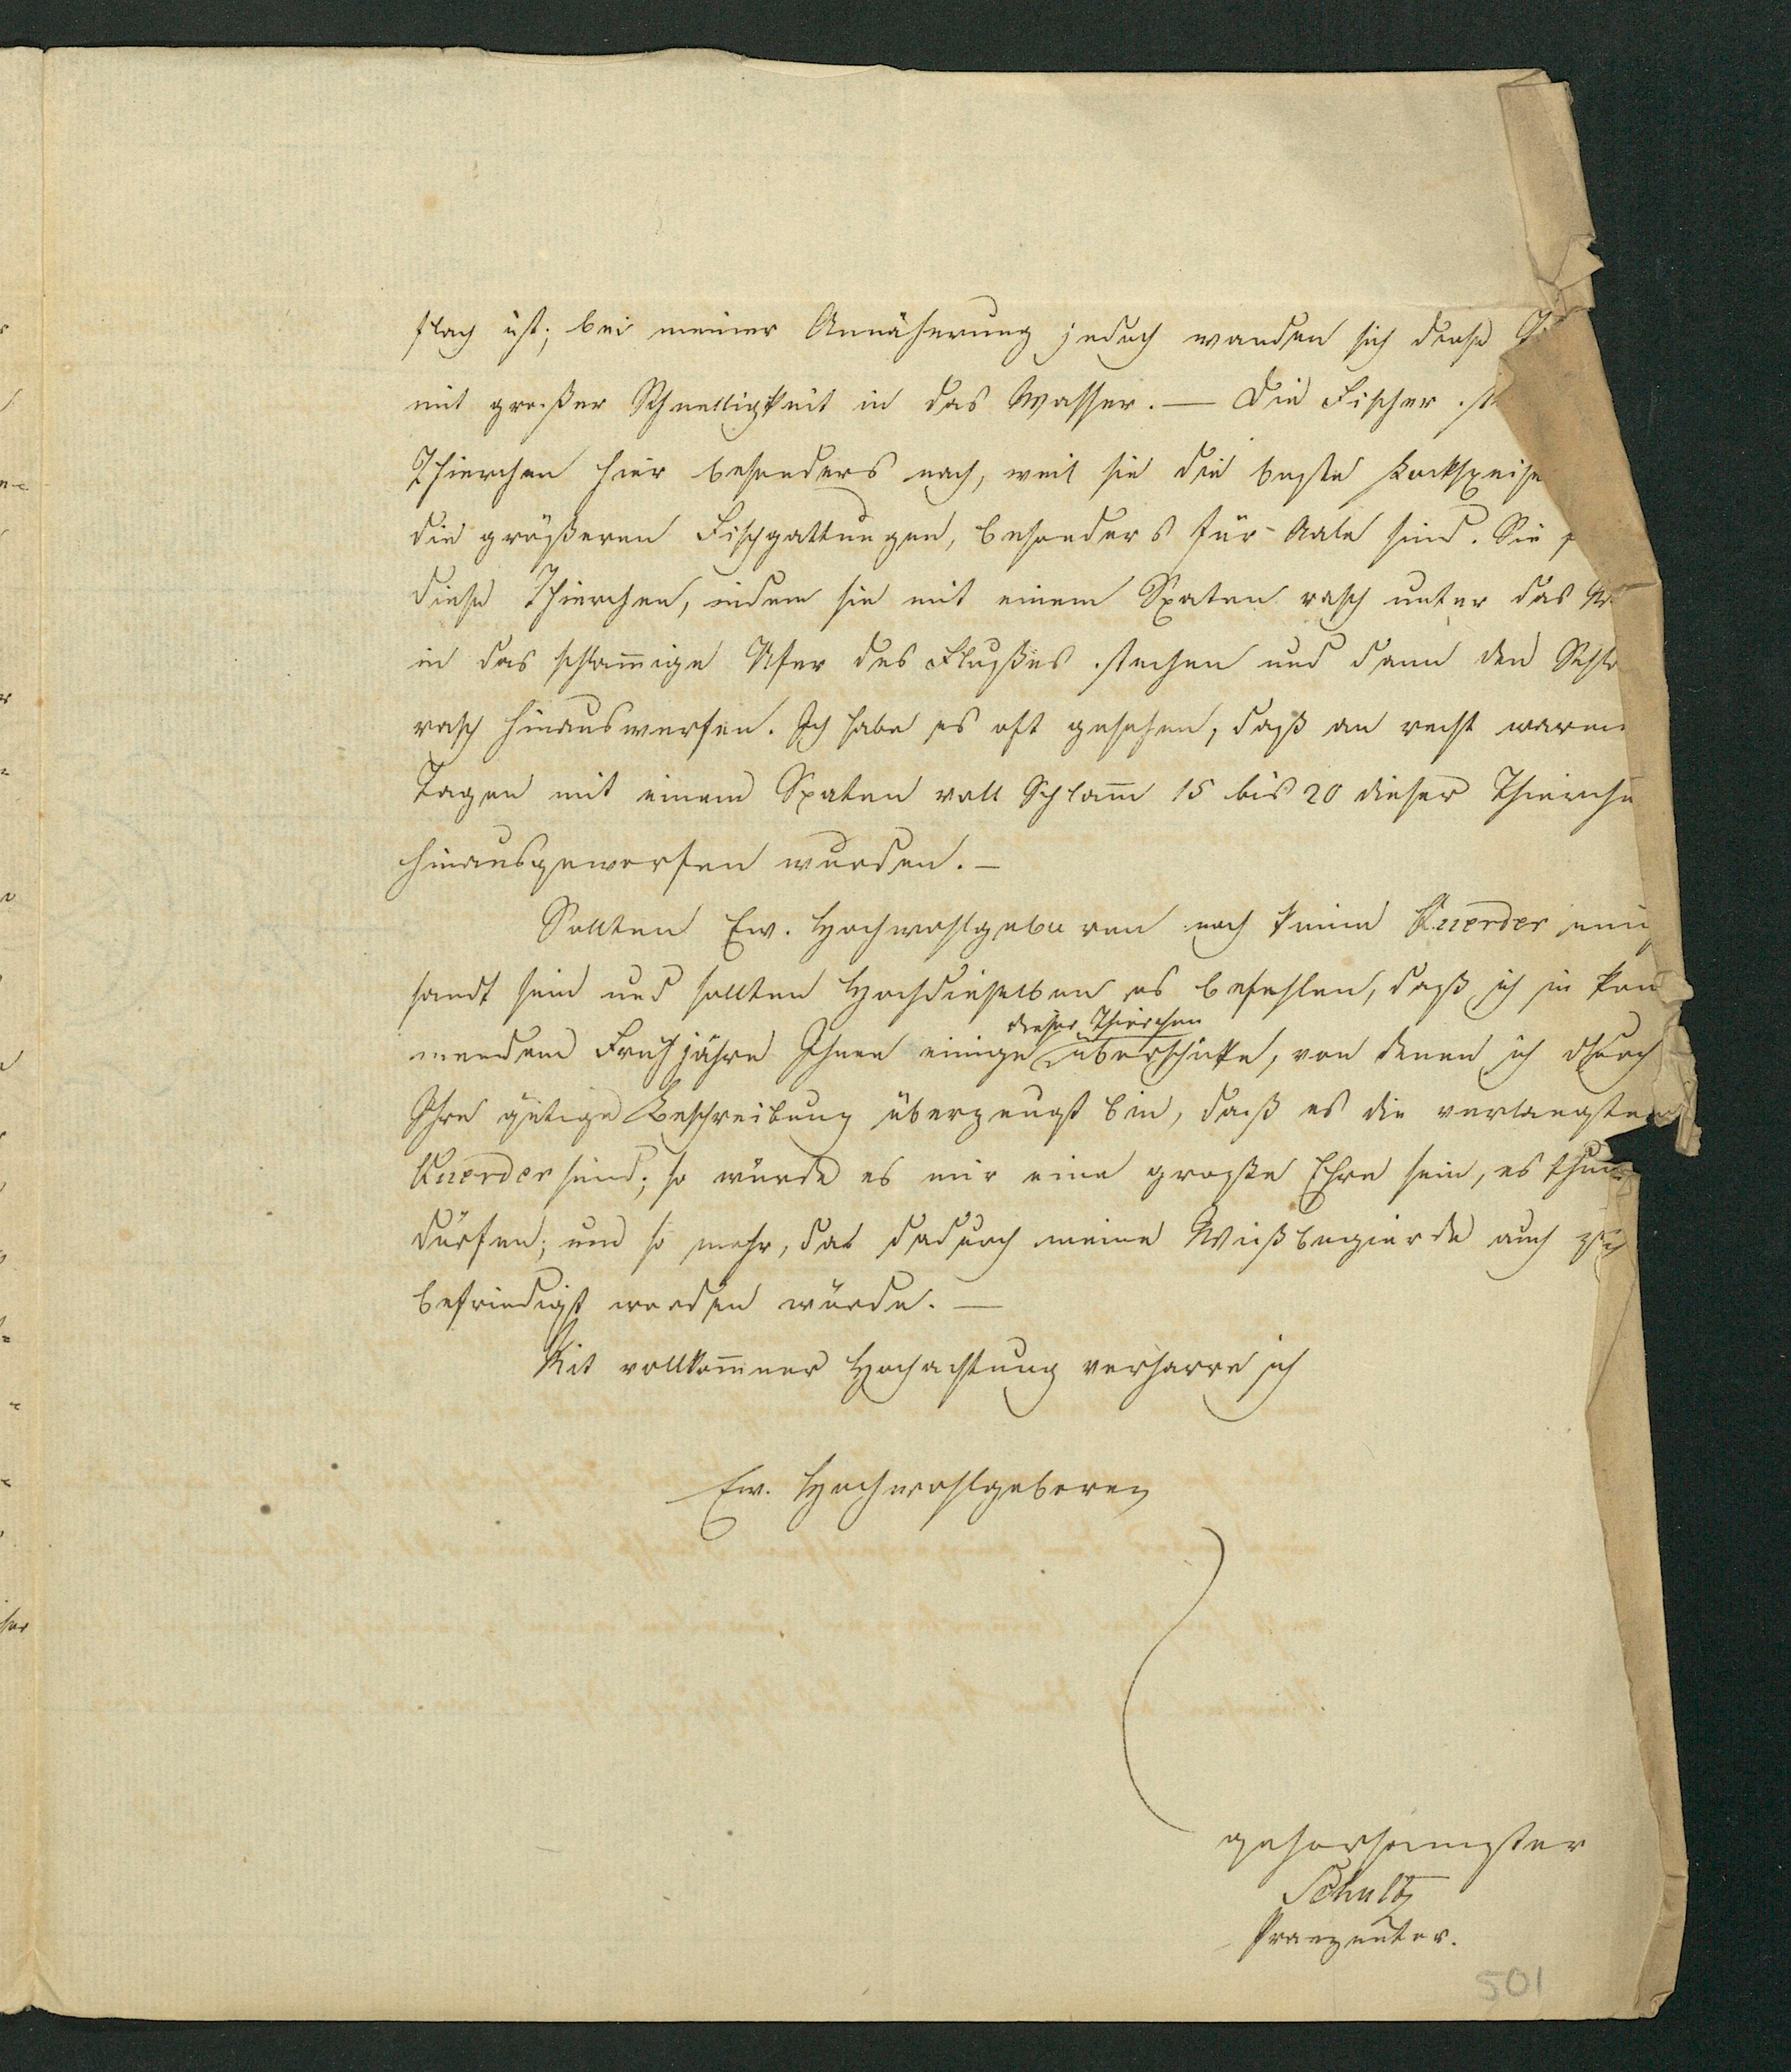 flach ist; bei meiner Annäherung jedoch wanden sich diese
mit großer Schnelligkeit in das Wasser. — Die Fischer
Thierchen hier besonders nach, weil sie die beste Lockspeise
die größeren Fischgattungen, besonders für Aale sind. Sie
diese Thierchen, indem sie mit einem Spaten rasch unter das
in das schlam̄ige Ufer des Flußes stechen und dann den Schla
rasch hinauswerfen. Ich habe es oft gesehen, daß an recht warmen
Tagen mit einem Spaten voll Schlam̄ 15 bis 20 dieser Thierche
hinausgeworfen wurden. —
Sollten Ew. Hochwohlgeboren noch keine Querder einge
sandt sein und sollten Hochdieselben es befehlen, daß ich in kom
dieser Thierchen
mendem Frühjahre Ihnen einige überschicke, von denen ich durch
Ihre gütige Beschreibung überzeugt bin, daß es die verlangten
Querder sind; so würde es mir eine große Ehre sein, es thun
dürfen; um so mehr, da dadurch meine Wißbegierde auch
befriedigt werden würde. —
Mit vollkom̄ner Hochachtung verharre ich
Ew. Hochwohlgeboren
gehorsamster
Schultz
Praezentor.
501